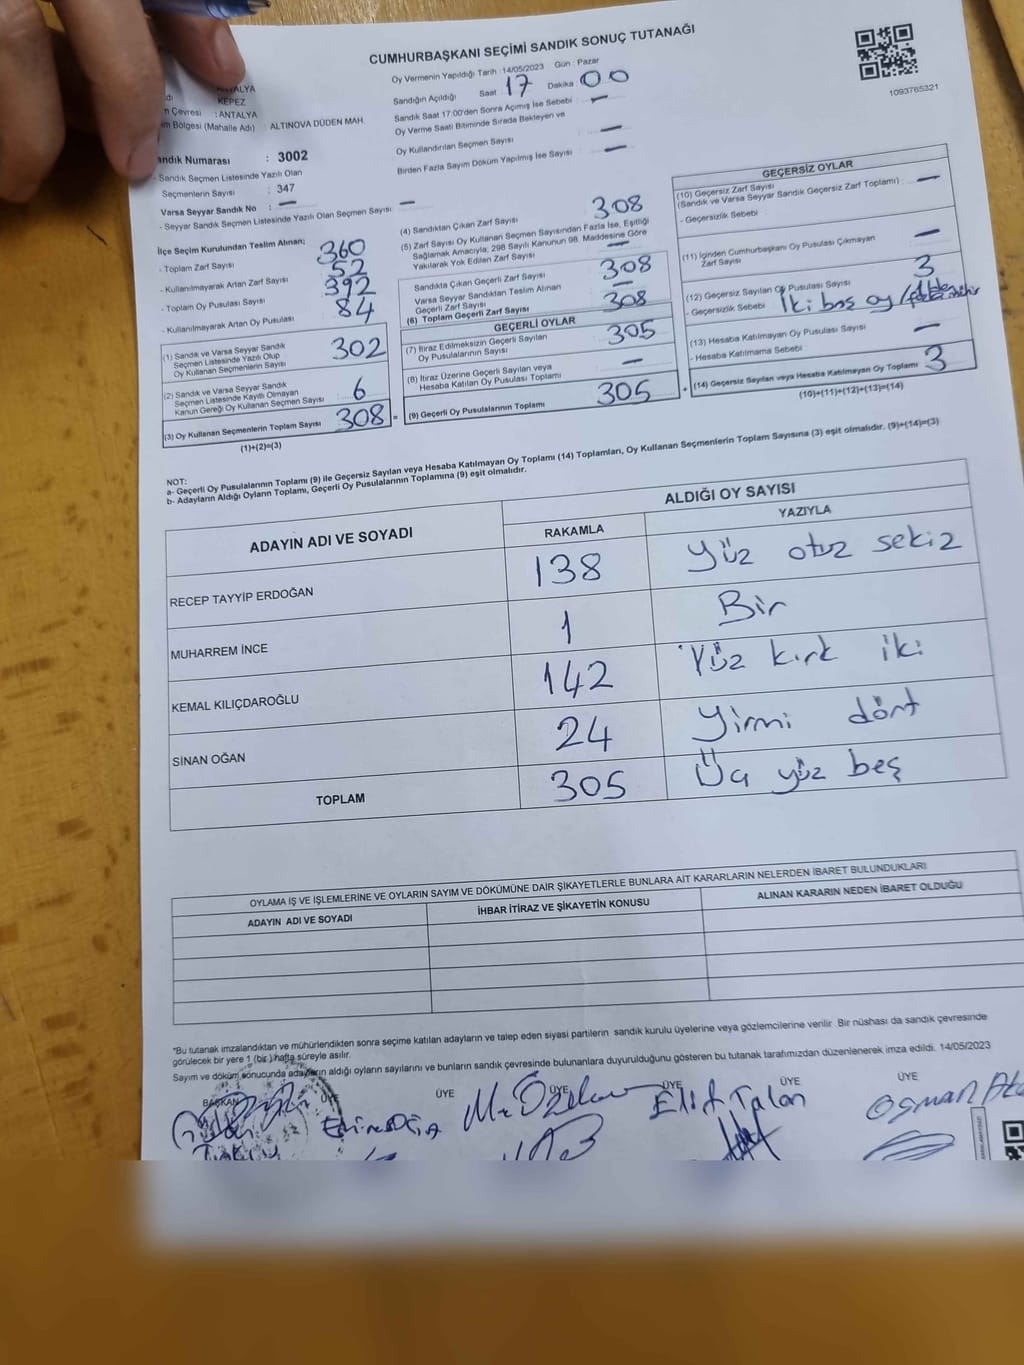 CUMHURBAŞKANI SEÇİMİ SANDIK SONUÇ TUTANAĞI
1093765321
ANTALYA
KEPEZ
Çevresi : ANTALYA
Bölgesi (Mahalle Adı) : ALTINOVA DÜDEN MAH.
Sandık Numarası : 3002
- Sandık Seçmen Listesinde Yazılı Olan
Seçmenlerin Sayısı : 347
Varsa Seyyar Sandık No : —
- Seyyar Sandık Seçmen Listesinde Yazılı Olan Seçmen Sayısı: —
Oy Vermenin Yapıldığı Tarih : 14/05/2023 Gün : Pazar
Sandığın Açıldığı Saat : 17 Dakika : 00
Sandık Saat 17:00'den Sonra Açımış İse Sebebi : —
Oy Verme Saati Bitiminde Sırada Bekleyen ve
Oy Kullandırılan Seçmen Sayısı : —
Birden Fazla Sayım Döküm Yapılmış İse Sayısı : —
İlçe Seçim Kurulundan Teslim Alınan;
- Toplam Zarf Sayısı : 360
- Kullanılmayarak Artan Zarf Sayısı : 52
- Toplam Oy Pusulası Sayısı : 392
- Kullanılmayarak Artan Oy Pusulası : 84
(1) Sandık ve Varsa Seyyar Sandık
Seçmen Listesinde Yazılı Olup
Oy Kullanan Seçmenlerin Sayısı : 302
(2) Sandık ve Varsa Seyyar Sandık
Seçmen Listesinde Kayıtlı Olmayan
Kanun Gereği Oy Kullanan Seçmen Sayısı : 6
(3) Oy Kullanan Seçmenlerin Toplam Sayısı : 308
(1)+(2)=(3)
(4) Sandıktan Çıkan Zarf Sayısı : 308
(5) Zarf Sayısı Oy Kullanan Seçmen Sayısından Fazla İse, Eşitliği
Sağlamak Amacıyla; 298 Sayılı Kanunun 98. Maddesine Göre
Yakılarak Yok Edilen Zarf Sayısı : —
Sandıkta Çıkan Geçerli Zarf Sayısı : 308
Varsa Seyyar Sandıktan Teslim Alınan
Geçerli Zarf Sayısı : —
(6) Toplam Geçerli Zarf Sayısı : 308
GEÇERLİ OYLAR
(7) İtiraz Edilmeksizin Geçerli Sayılan
Oy Pusulalarının Sayısı : 305
(8) İtiraz Üzerine Geçerli Sayılan veya
Hesaba Katılan Oy Pusulası Toplamı : —
(9) Geçerli Oy Pusulalarının Toplamı : 305
GEÇERSİZ OYLAR
(10) Geçersiz Zarf Sayısı
(Sandık ve Varsa Seyyar Sandık Geçersiz Zarf Toplamı) : —
- Geçersizlik Sebebi :
(11) İçinden Cumhurbaşkanı Oy Pusulası Çıkmayan
Zarf Sayısı : —
(12) Geçersiz Sayılan Oy Pusulası Sayısı : 3
- Geçersizlik Sebebi : iki boş oy /
(13) Hesaba Katılmayan Oy Pusulası Sayısı : —
- Hesaba Katılmama Sebebi :
(14) Geçersiz Sayılan veya Hesaba Katılmayan Oy Toplamı : 3
(10)+(11)+(12)+(13)=(14)
NOT:
a- Geçerli Oy Pusulalarının Toplamı (9) ile Geçersiz Sayılan veya Hesaba Katılmayan Oy Toplamı (14) Toplamları, Oy Kullanan Seçmenlerin Toplam Sayısına (3) eşit olmalıdır. (9)+(14)=(3)
b- Adayların Aldığı Oyların Toplamı, Geçerli Oy Pusulalarının Toplamına (9) eşit olmalıdır.
ADAYIN ADI VE SOYADI
ALDIĞI OY SAYISI
RAKAMLA YAZIYLA
RECEP TAYYİP ERDOĞAN 138 Yüz otuz sekiz
MUHARREM İNCE 1 Bir
KEMAL KILIÇDAROĞLU 142 Yüz kırk iki
SİNAN OĞAN 24 Yirmi dört
TOPLAM 305 Üç yüz beş
OYLAMA İŞ VE İŞLEMLERİNE VE OYLARIN SAYIM VE DÖKÜMÜNE DAİR ŞİKAYETLERLE BUNLARA AİT KARARLARIN NELERDEN İBARET BULUNDUKLARI
ADAYIN ADI VE SOYADI İHBAR İTİRAZ VE ŞİKAYETİN KONUSU ALINAN KARARIN NEDEN İBARET OLDUĞU
*Bu tutanak imzalandıktan ve mühürlendikten sonra seçime katılan adayların ve talep eden siyasi partilerin sandık kurulu üyelerine veya gözlemcilerine verilir. Bir nüshası da sandık çevresinde
görülecek bir yere 1 (bir) hafta süreyle asılır.
Sayım ve döküm sonucunda adayların aldığı oyların sayılarını ve bunların sandık çevresinde bulunanlara duyurulduğunu gösteren bu tutanak tarafımızdan düzenlenerek imza edildi. 14/05/2023
BAŞKAN ÜYE ÜYE ÜYE ÜYE ÜYE ÜYE
Elif Talan
Osman